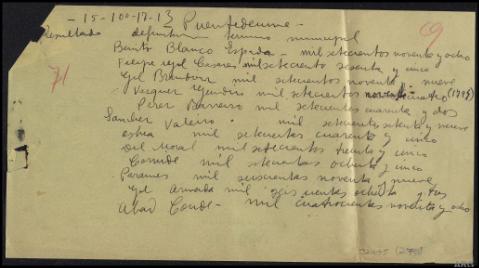 - 15-100-17-13 Puentedeume -
69
Resultado definitivo termino municipal
Benito Blanco Espada - mil setecientos noventa y ocho
71
Felipe Casares mil setecientos sesenta y cinco
mil setecientos noventa nueve
Vazquez mil setecientos cuatro (1794)
Perez Barreiro mil setecientos cuarenta y dos
Sanchez Valeiro - mil setecientos setenta y nueve
mil setecientos cuarenta y cinco
Del Moral mil setecientos treinta y cinco
Cornide mil setecientos ochenta y cinco
mil seiscientos noventa nueve
Armada mil seiscientos ochenta y tres
Abad Conde - mil cuatrocientos noventa y ocho